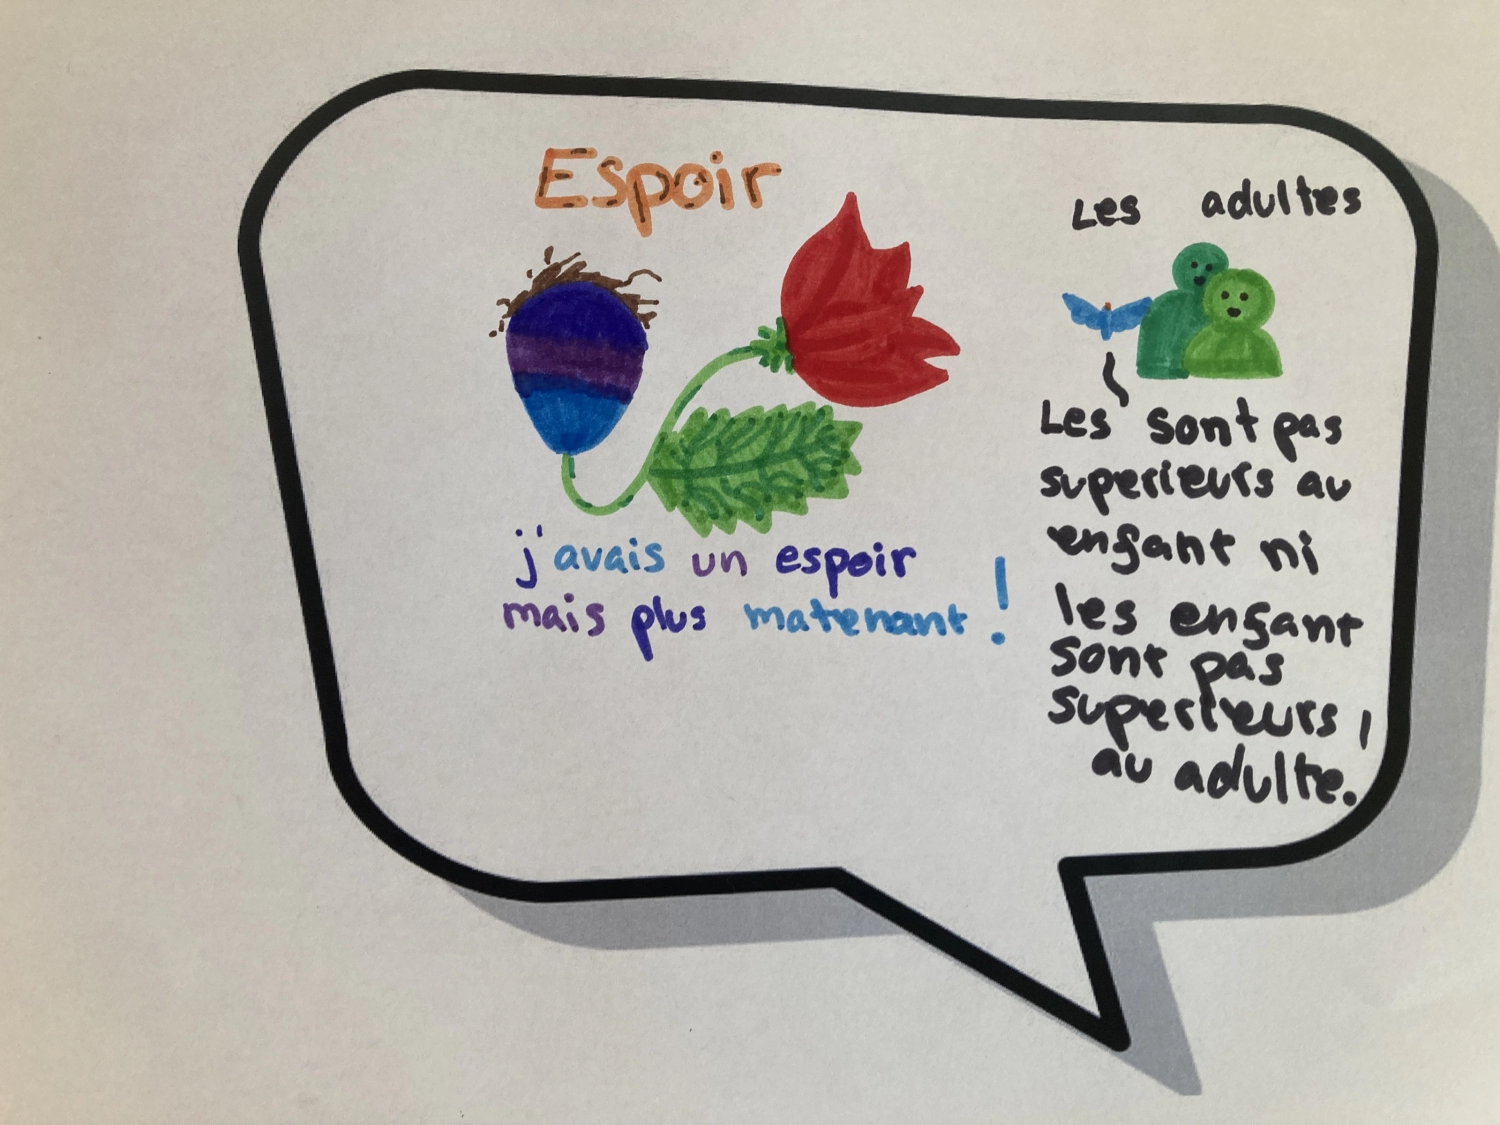 Espoir
j'avais un espoir
mais plus matenant !
Les adultes
Les sont pas
superieurs au
enfant ni
les enfant
sont pas
superieurs
au adulte.